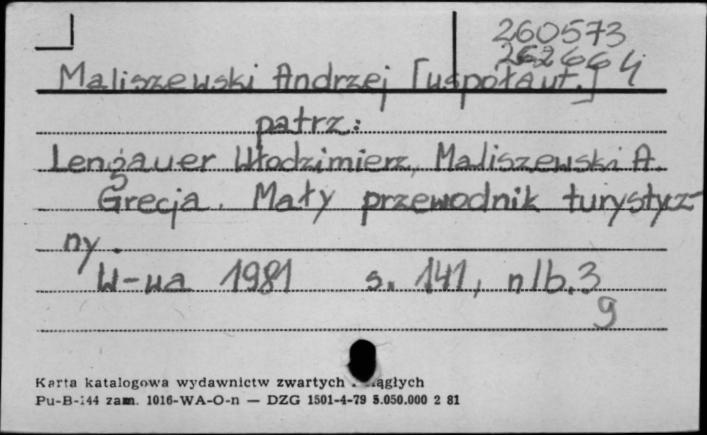 260573
262664
Maliszewski Andrzej [współaut.]
patrz:
Lengauer Włodzimierz, Maliszewski A.
Grecja. Mały przewodnik turystycz-
ny.
W-wa 1981 s. 141, nlb. 3
9
Karta katalogowa wydawnictw zwartych
Pu-B-144 zam. 1016-WA-O-n — DZG 1501-4-79 5.050.000 2 81